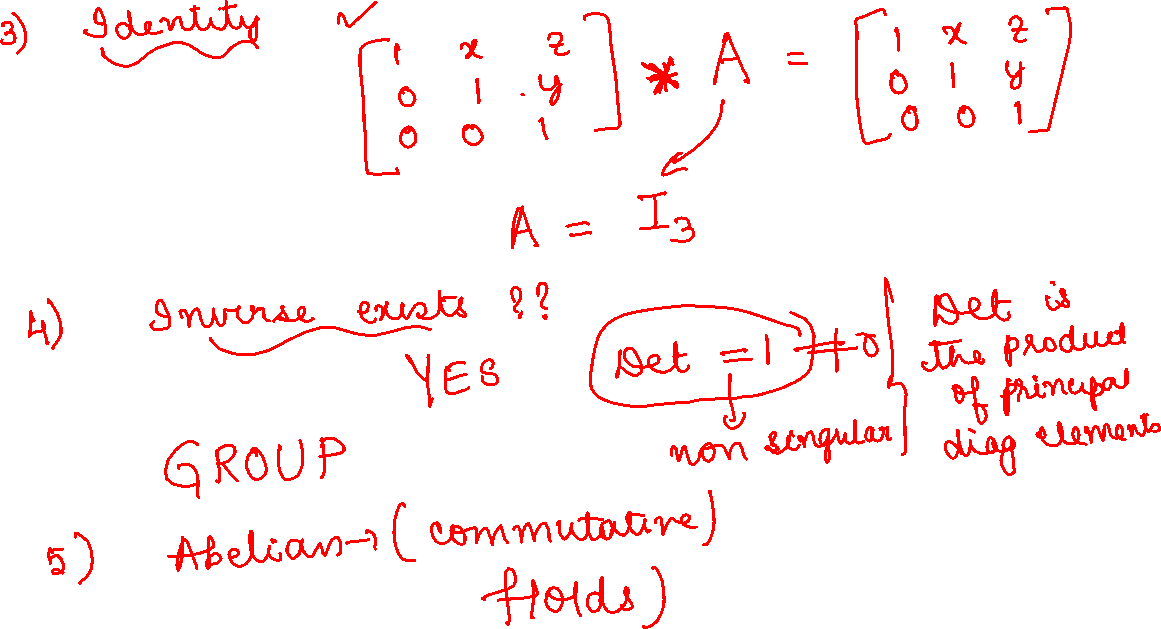 3) Identity ✓
[1 x z
0 1 y
0 0 1] * A = [1 x z
0 1 y
0 0 1]
A = I₃
4) Inverse exists ??
YES
Det = 1 ≠ 0
non singular
Det is
the product
of principal
diag elements
GROUP
5) Abelian → (commutative)
Holds)